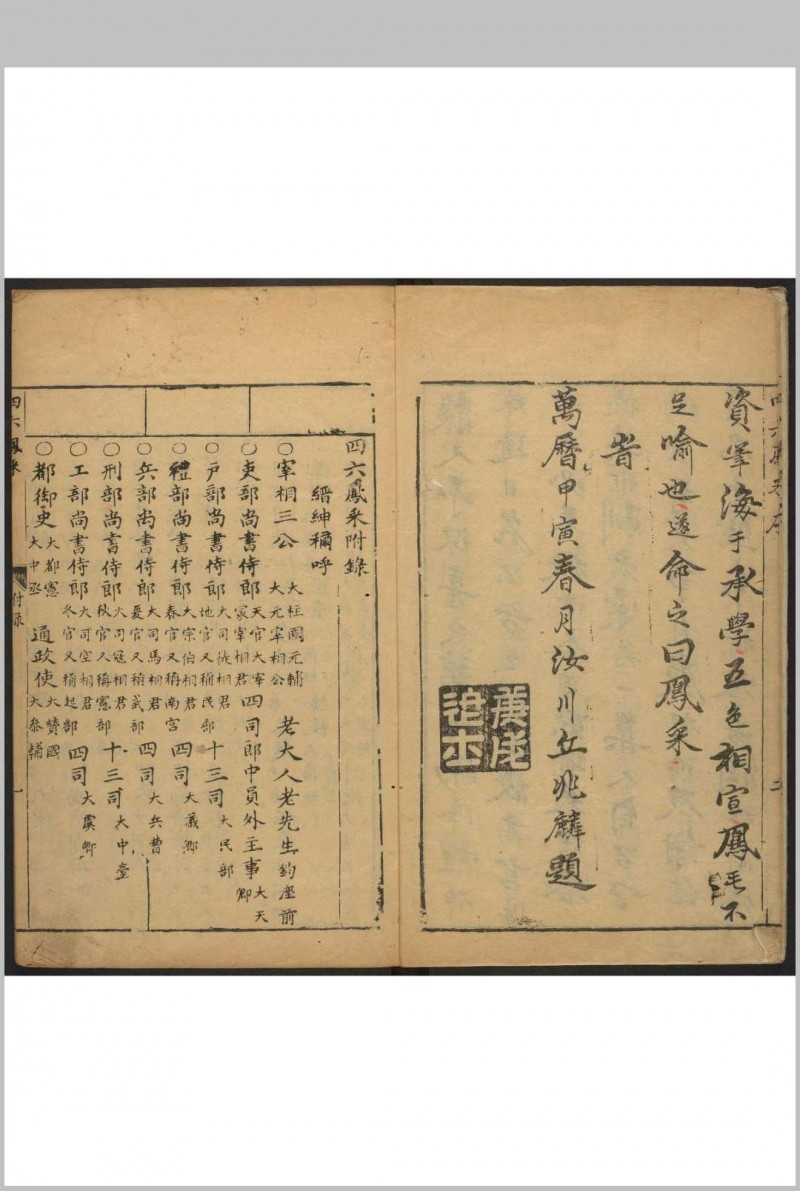 資筆海于承學五色相宣鳳毛不
足喻也遂命之曰鳳采
旹
萬曆甲寅春月汝川丘兆麟題
庚戌進士
四六鳳采附錄
縉紳稱呼
〇宰相三公 大柱國元輔 大元宰相公 老大人老先生鈞座前
〇吏部尚書侍郎 天官大宰 冢宰相君 四司郎中員外主事 大天卿
〇戶部尚書侍郎 大司徒相君 地官又稱民部 十三司 大民部
〇禮部尚書侍郎 大宗伯相君 春官又稱南宮 四司 大儀卿
〇兵部尚書侍郎 大司馬相君 夏官又稱武部 四司 大兵曹
〇刑部尚書侍郎 大司寇相君 秋官又稱憲部 十三司 大中臺
〇工部尚書侍郎 大司空相君 冬官又稱起部 四司 大虞卿
〇都御史 大都憲 大中丞 通政使 大贊國 大參輔
四六鳳采 付錄 一